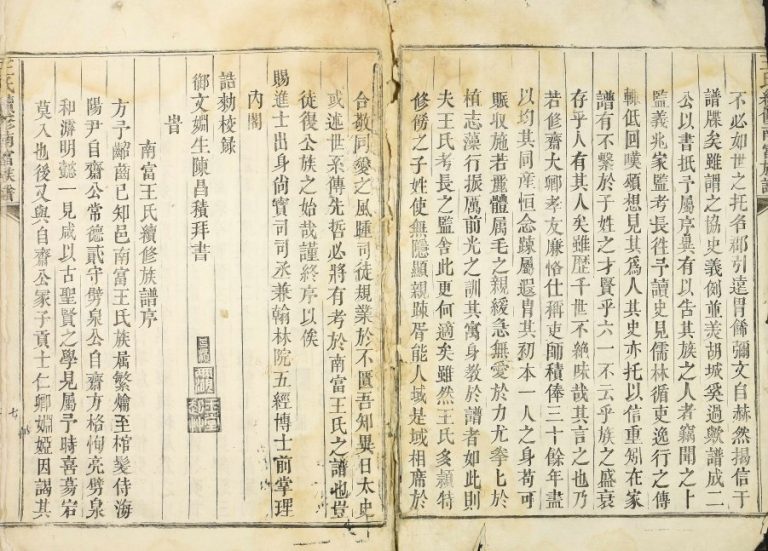 不必如世之托名郡引遠胄餙彌文自赫然揚信于
譜牒矣雖謂之協史義倒並羙胡城奚過歟譜成二
公以書抵予屬序㒷有以告其族之人者竊聞之卜
監義兆家監考長徃予讀史見儒林循吏逸行之傳
輙低回嘆頫想見其爲人其史亦托以信重矧在家
譜有不繫於子姓之才賢乎六一不云乎族之盛衰
存乎人有其人矣雖歷千世不絶味哉其言之也乃
若修齋大卿孝友廉恪仕稱吏師積俸三十餘年盡
以均其同産恒念踈屬遐胄其初本一人之身苟可
賑收施若𨉖體屬毛之親緩急無愛於力尤拳匕於
植志藻行振厲前光之訓其寓身教於譜者如此則
夫王氏考長之監舍此更何適矣雖然王氏多頴特
修傗之子姓使無隱顯親踈胥能人域是域相席於
合敬同愛之風踵司徒規業於不匱吾知異日太史
或述世系傳先哲必將有考於南富王氏之譜也豈
徒復公族之始哉謹終序以俟
賜進士出身尚寳司司丞兼翰林院五經博士前掌理
內閣
誥勅校録
御文嫺生陳昌積拜書
南富王氏續修族譜序
方予齠齒已知邑南富王氏族属繁爚至棺髮侍海
陽尹自齋公常德貳守劈泉公自齋方格恂亮劈泉
和澼明懿一見咸以古聖賢之學見屬予時喜蕩岩
莫入也後又與自齋公冢子貢士仁卿婣婭因謁其
七